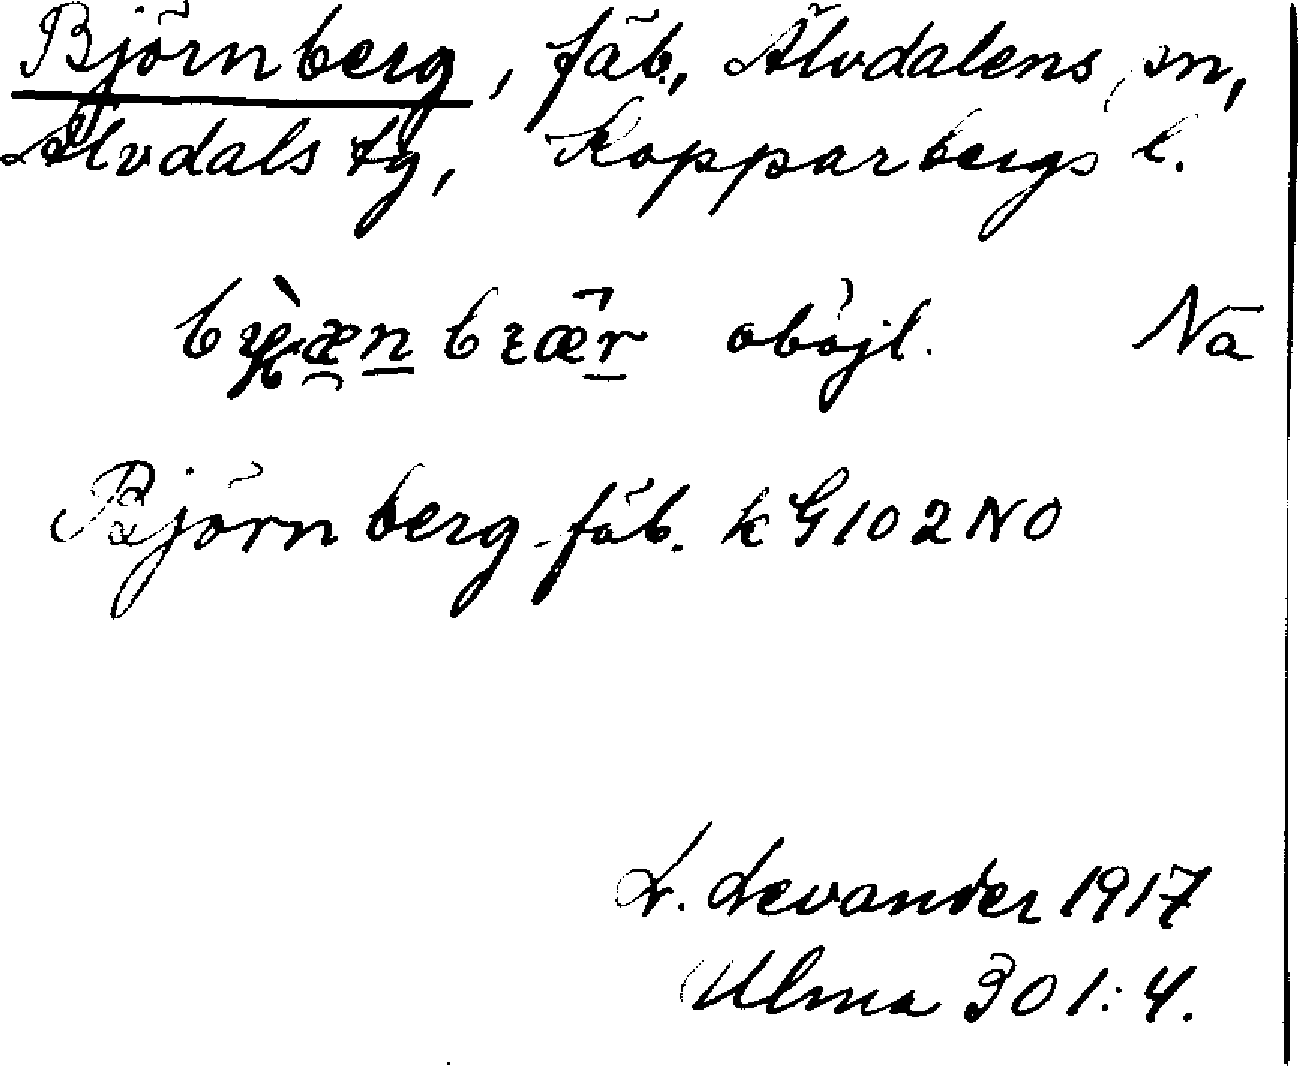 Björnberg, fäb., Älvdalens sn,
Älvdals tg, Kopparbergs l.
oböjl. Nä
Björnberg fäb. k G 102 NO
L. Levander 1917
Ulma 301:4.